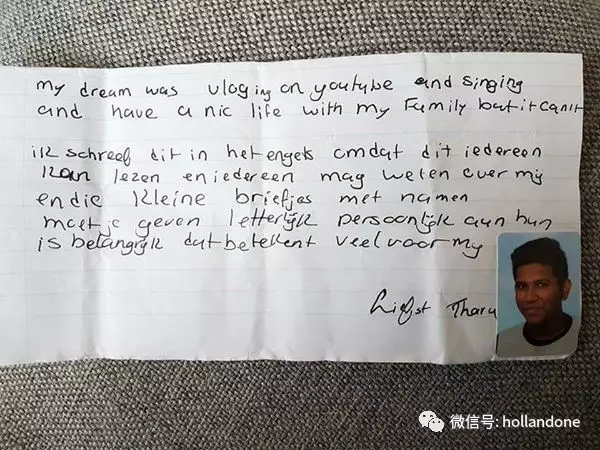 my dream was vloging on youtube and singing
and have a nic life with my Family but it canit
ik schreef dit in het engels omdat dit iedereen
kan lezen en iedereen mag weten over mij
en die kleine briefjes met namen
moet je geven letterlijk persoonlijk aan hun
is belangrijk dat betekent veel voor mij
Liefst Tharu
微信号: hollandone